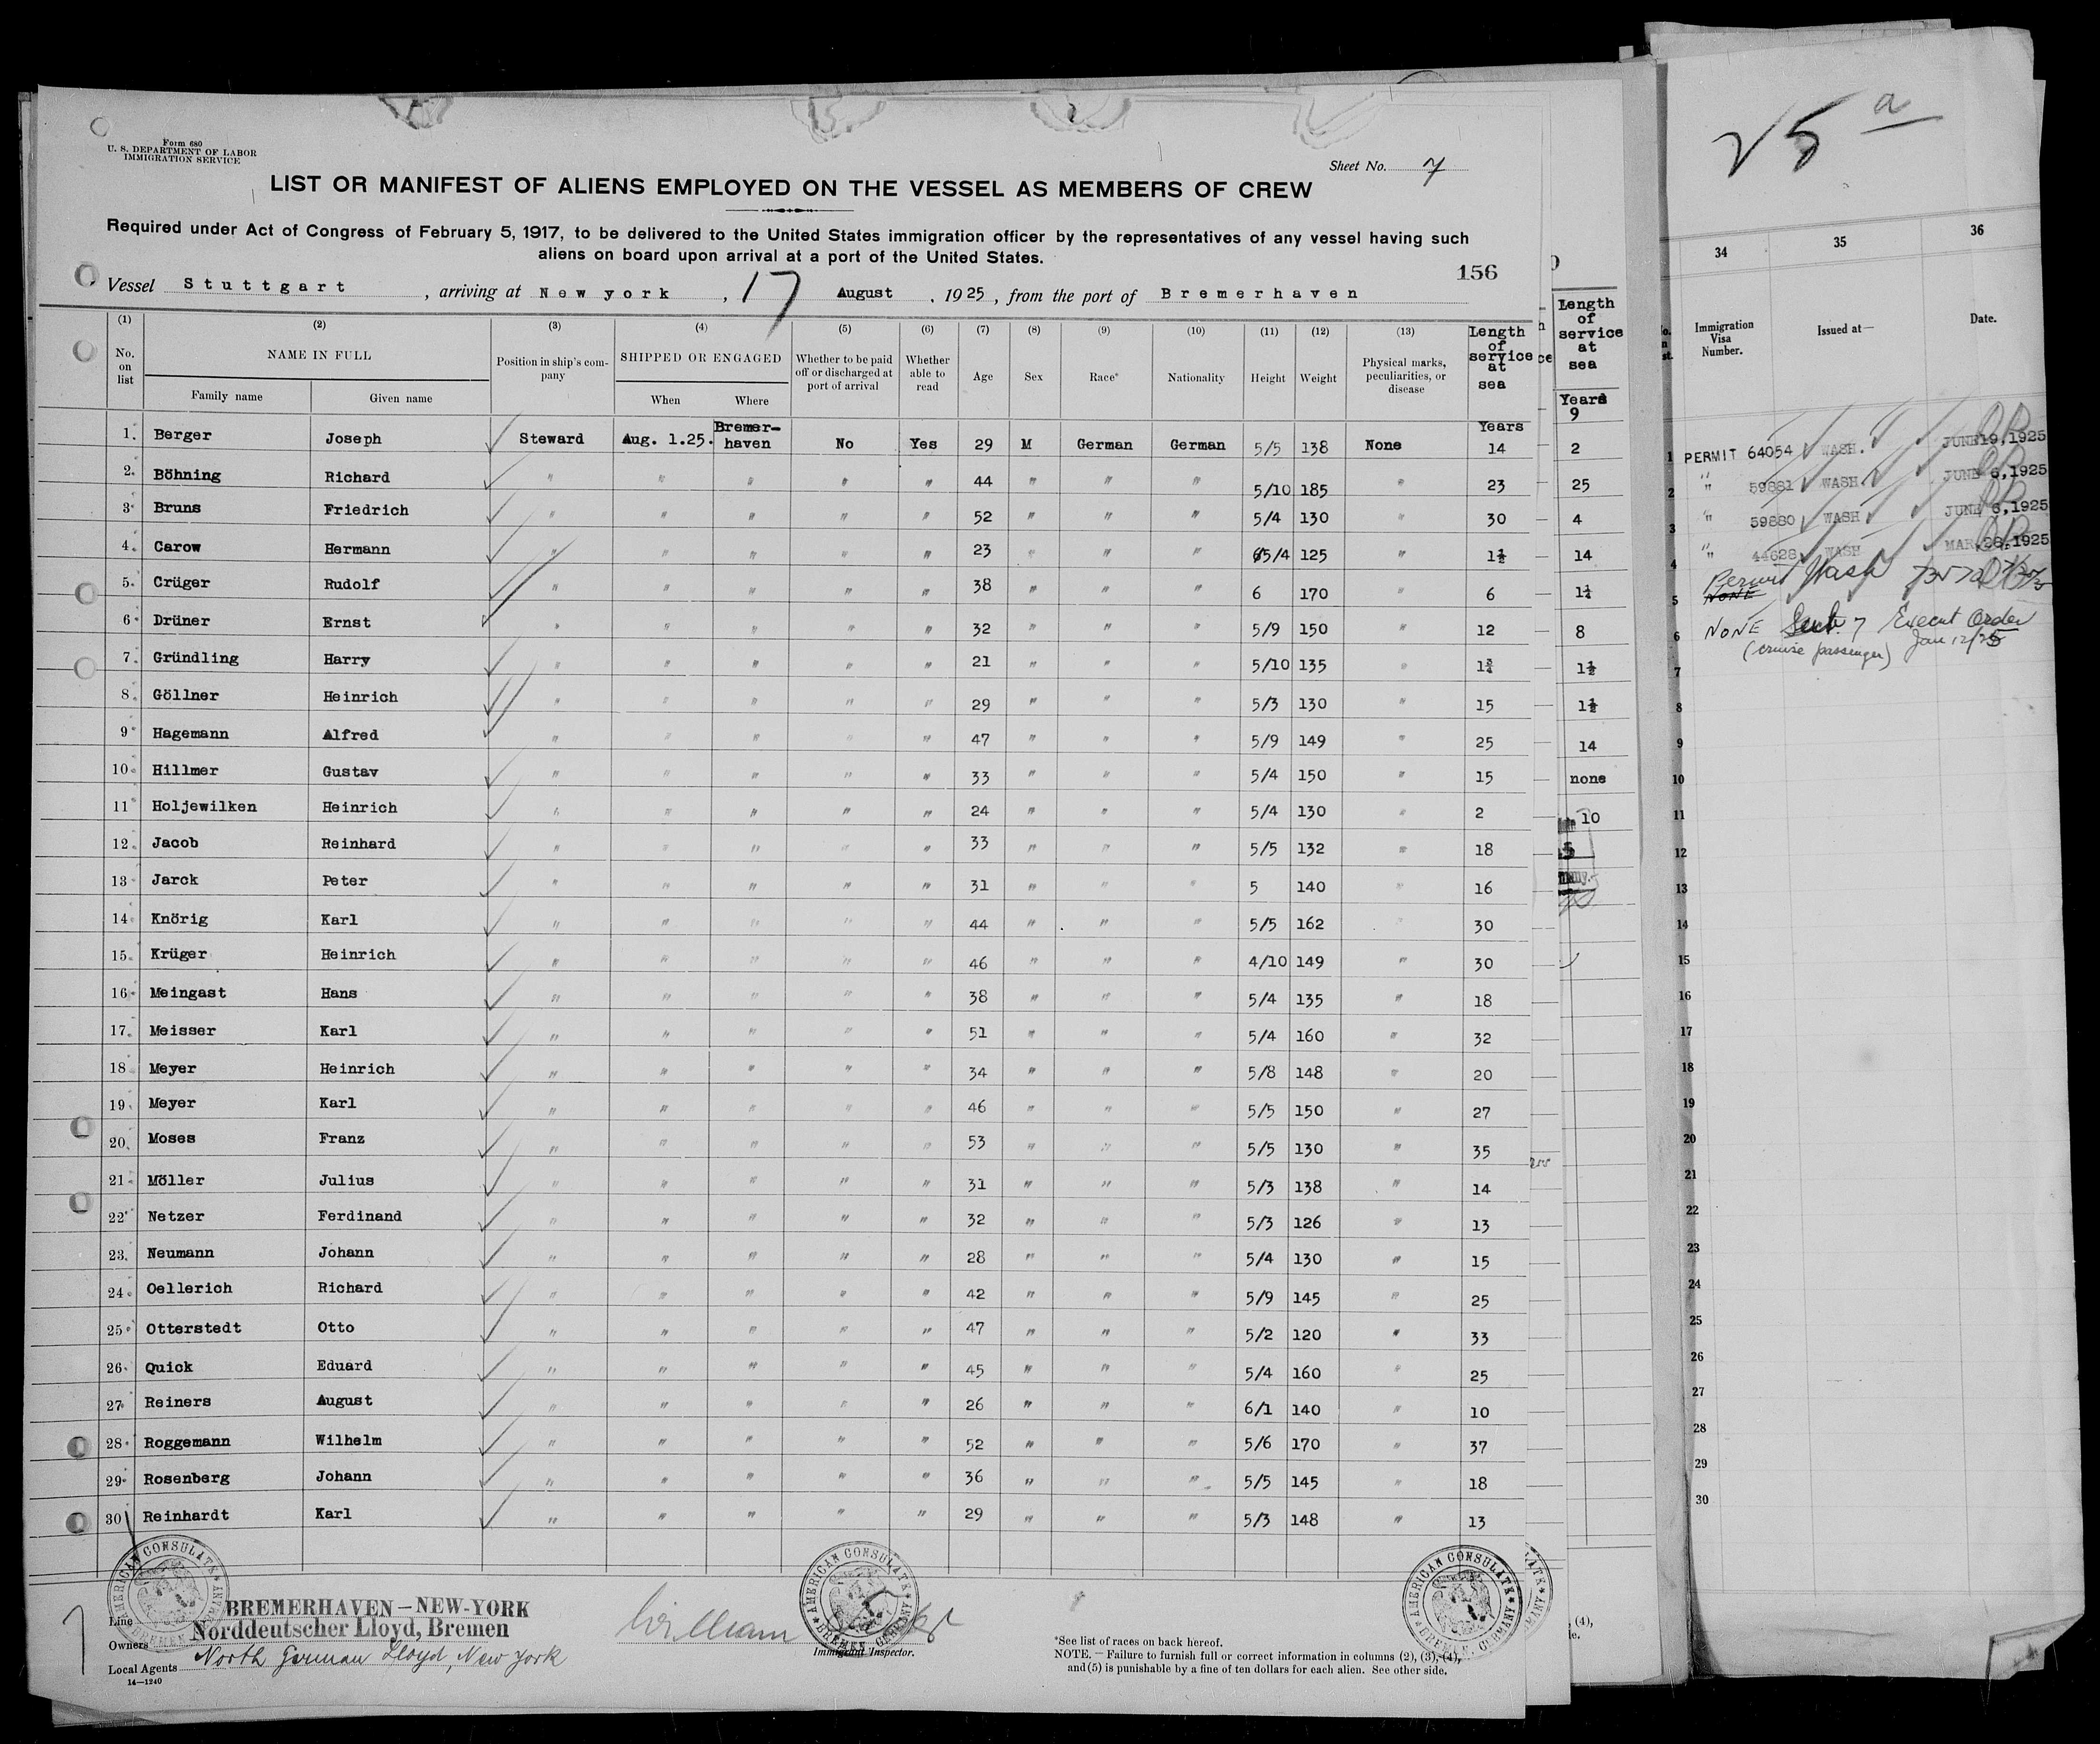 Form 680
U. S. DEPARTMENT OF LABOR
IMMIGRATION SERVICE
Sheet No. 7
LIST OR MANIFEST OF ALIENS EMPLOYED ON THE VESSEL AS MEMBERS OF CREW
Required under Act of Congress of February 5, 1917, to be delivered to the United States immigration officer by the representatives of any vessel having such
aliens on board upon arrival at a port of the United States.
156
Vessel Stuttgart, arriving at New york, 17 August, 1925, from the port of Bremerhaven
(1) (2) (3) (4) (5) (6) (7) (8) (9) (10) (11) (12) (13)
No. on list NAME IN FULL Position in ship's company SHIPPED OR ENGAGED Whether to be paid off or discharged at port of arrival Whether able to read Age Sex Race* Nationality Height Weight Physical marks, peculiarities, or disease Length of service at sea
Family name Given name When Where
Years
1. Berger Joseph Steward Aug. 1.25. Bremerhaven No Yes 29 M German German 5/5 138 None 14
2. Böhning Richard " " " " " 44 " " " 5/10 185 " 23
3. Bruns Friedrich " " " " " 52 " " " 5/4 130 " 30
4. Carow Hermann " " " " " 23 " " " 5/4 125 " 1½
5. Crüger Rudolf " " " " " 38 " " " 6 170 " 6
6. Drüner Ernst " " " " " 32 " " " 5/9 150 " 12
7. Gründling Harry " " " " " 21 " " " 5/10 135 " 1¾
8. Göllner Heinrich " " " " " 29 " " " 5/3 130 " 15
9. Hagemann Alfred " " " " " 47 " " " 5/9 149 " 25
10. Hillmer Gustav " " " " " 33 " " " 5/4 150 " 15
11. Holjewilken Heinrich " " " " " 24 " " " 5/4 130 " 2
12. Jacob Reinhard " " " " " 33 " " " 5/5 132 " 18
13. Jarck Peter " " " " " 31 " " " 5 140 " 16
14. Knörig Karl " " " " " 44 " " " 5/5 162 " 30
15. Krüger Heinrich " " " " " 46 " " " 4/10 149 " 30
16. Meingast Hans " " " " " 38 " " " 5/4 135 " 18
17. Meisser Karl " " " " " 51 " " " 5/4 160 " 32
18. Meyer Heinrich " " " " " 34 " " " 5/8 148 " 20
19. Meyer Karl " " " " " 46 " " " 5/5 150 " 27
20. Moses Franz " " " " " 53 " " " 5/5 130 " 35
21. Möller Julius " " " " " 31 " " " 5/3 138 " 14
22. Netzer Ferdinand " " " " " 32 " " " 5/3 126 " 13
23. Neumann Johann " " " " " 28 " " " 5/4 130 " 15
24. Oellerich Richard " " " " " 42 " " " 5/9 145 " 25
25. Otterstedt Otto " " " " " 47 " " " 5/2 120 " 33
26. Quick Eduard " " " " " 45 " " " 5/4 160 " 25
27. Reiners August " " " " " 26 " " " 6/1 140 " 10
28. Roggemann Wilhelm " " " " " 52 " " " 5/6 170 " 37
29. Rosenberg Johann " " " " " 36 " " " 5/5 145 " 18
30. Reinhardt Karl " " " " " 29 " " " 5/3 148 " 13
AMERICAN CONSULATE BREMEN, GERMANY
AMERICAN CONSULATE BREMEN, GERMANY
AMERICAN CONSULATE BREMEN, GERMANY
Line BREMERHAVEN—NEW-YORK
Owners Norddeutscher Lloyd, Bremen
Local Agents North German Lloyd, New York
14—1240
William
Immigrant Inspector.
*See list of races on back hereof.
NOTE.—Failure to furnish full or correct information in columns (2), (3), (4),
and (5) is punishable by a fine of ten dollars for each alien. See other side.
Length
of
service
at
sea
Years
9
2
25
4
14
1¼
8
1½
1½
14
none
10
25 a
34 35 36
Immigration Visa Number. Issued at— Date.
1 PERMIT 64054 WASH. JUNE 19, 1925
2 " 59881 WASH. JUNE 6, 1925
3 " 59880 WASH JUNE 6, 1925
4 " 44628 WASH MAR. 28, 1925
5 Permit Wash
NONE
6 NONE Sect. 7 Execut Order
(cruise passenger) Jan 12/25
7
8
9
10
11
12
13
14
15
16
17
18
19
20
21
22
23
24
25
26
27
28
29
30